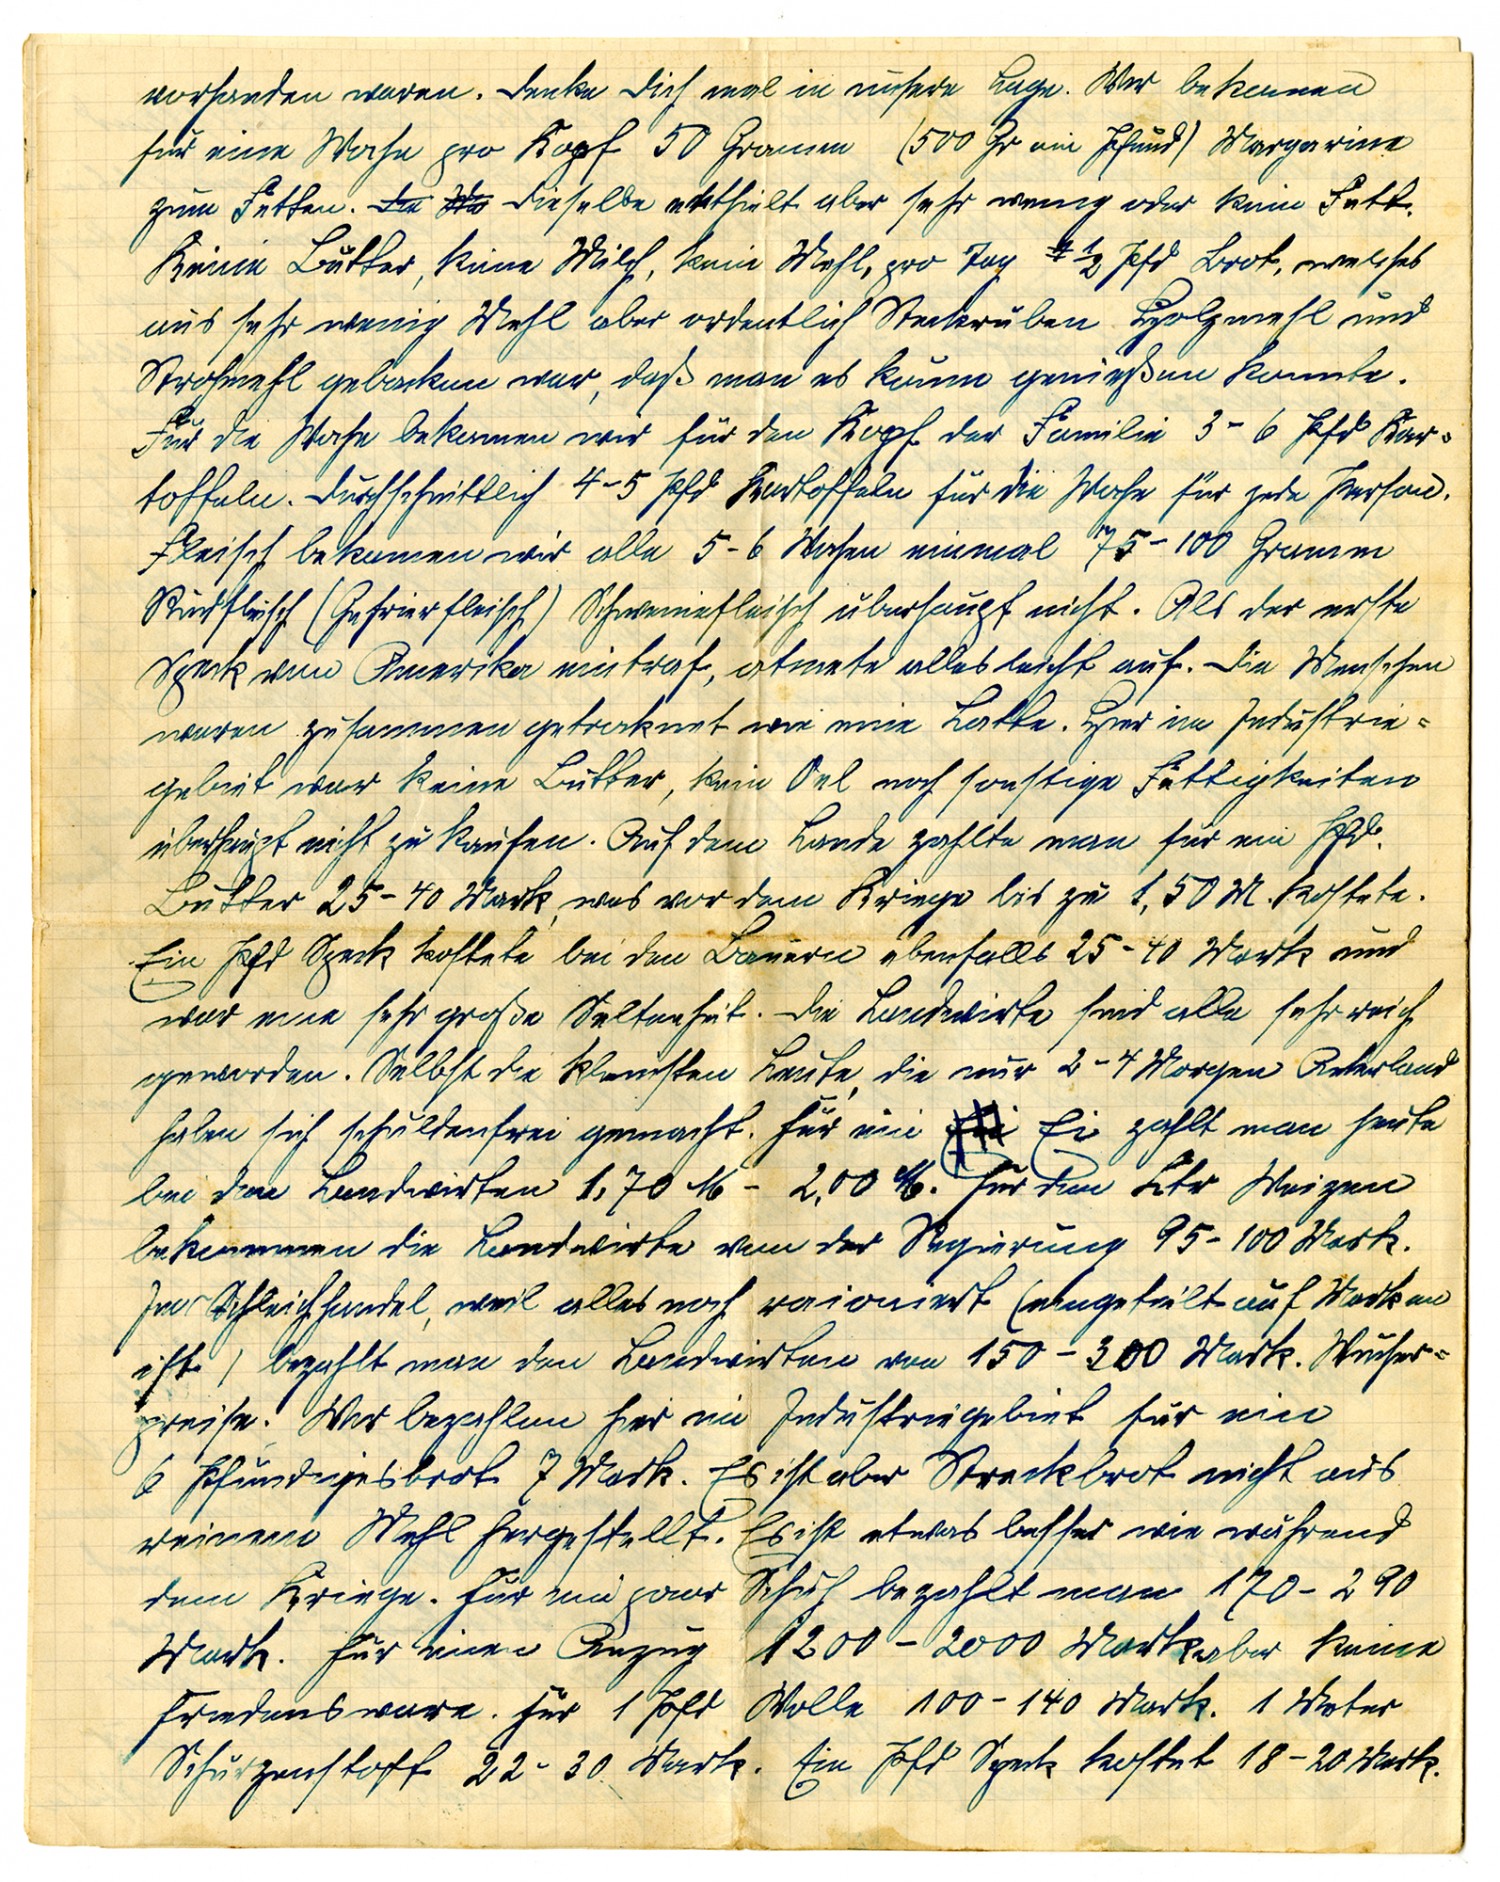 vorhanden waren. Denke Dich mal in unsere Lage. Wir bekamen
für eine Woche pro Kopf 50 Gramm (500 Gr ein Pfund) Margarine
zum Fetten. Die Wo dieselbe enthielt aber sehr wenig oder kein Fett.
Keine Butter, keine Milch, kein Mehl, pro Tag 1/2 Pfd Brot, welches
aus sehr wenig Mehl aber ordentlich Steckrüben Holzmehl und
Strohmehl gebacken war, daß man es kaum genießen konnte.
Für die Woche bekamen wir für den Kopf der Familie 3-6 Pfd Kar=
toffeln. Durchschnittlich 4-5 Pfd Kartoffeln für die Woche für jede Person.
Fleisch bekamen wir alle 5-6 Wochen einmal 75-100 Gramm
Rindfleisch (Gefrierfleisch) Schweinefleisch überhaupt nicht. Als der erste
Speck von Amerika eintraf, atmete alles leicht auf. Die Menschen
waren zusammen getrocknet wie eine Latte. Hier im Industrie=
gebiet war keine Butter, kein Oel noch sonstige Fettigkeiten
überhaupt nicht zu kaufen. Auf dem Lande zahlte man für ein Pfd.
Butter 25-40 Mark, was vor dem Kriege bis zu 1,50 M. kostete.
Ein Pfd Speck kostete bei den Bauern ebenfalls 25-40 Mark und
war eine sehr große Seltenheit. Die Landwirte sind alle sehr reich
geworden. Selbst die kleinsten Leute, die nur 2-4 Morgen Ackerland
haben sich schuldenfrei gemacht. Für ein Ei zahlt man heute
bei den Landwirten 1,70 M - 2,00 M. Für den Ctr Weizen
bekommen die Landwirte von der Regierung 95-100 Mark.
Im Schleichhandel, weil alles noch raioniert (eingeteilt auf Marken
ist) bezahlt man den Landwirten von 150-300 Mark. Wucher=
preise. Wir bezahlen hier im Industriegebiet für ein
6 Pfündigesbrot 7 Mark. Es ist aber Streckbrot nicht aus
reinem Mehl hergestellt. Es ist etwas besser wie während
dem Kriege. Für ein paar Schuh bezahlt man 170-290
Mark. Für einen Anzug 1200-2000 Mark aber keine
Friedensware. Für 1 Pfd Wolle 100-140 Mark. 1 Meter
Schürzenstoff 22-30 Mark. Ein Pfd Speck kostet 18-20 Mark.